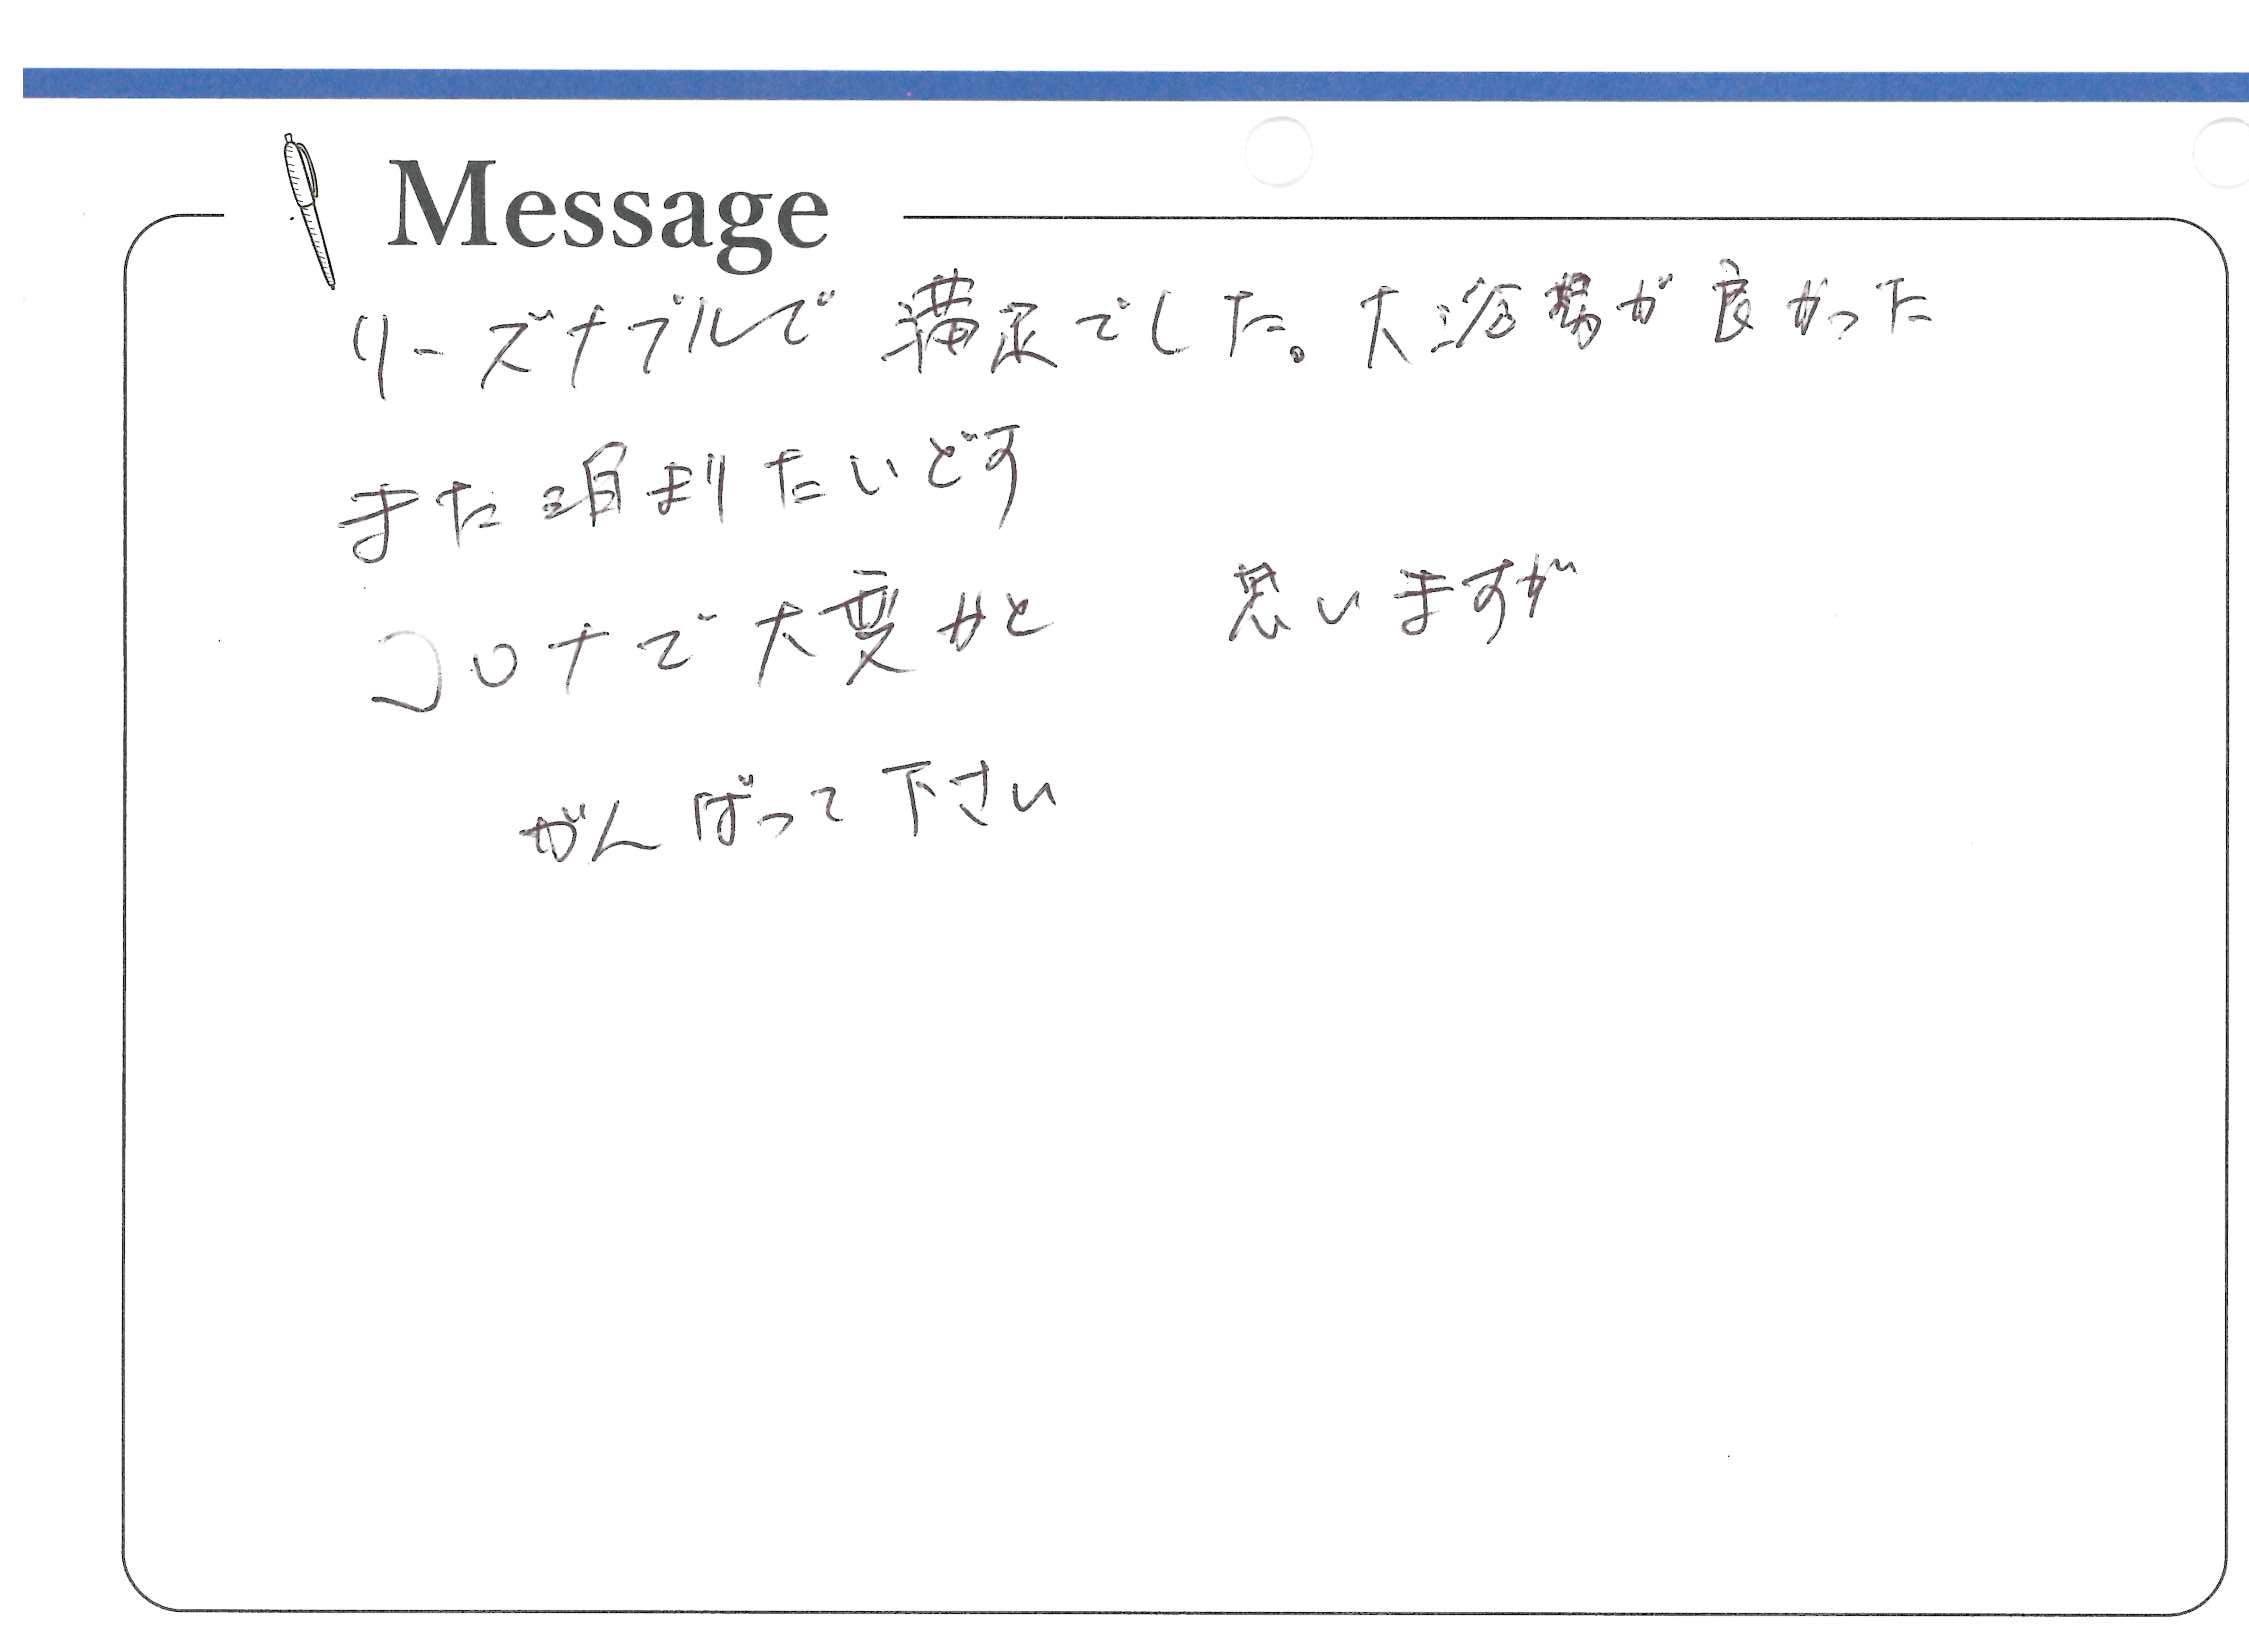 Message
リーズナブルで 満足でした。大浴場が良かった
また泊まりたいどす
コロナで大変かと 思いますが
がんばって下さい